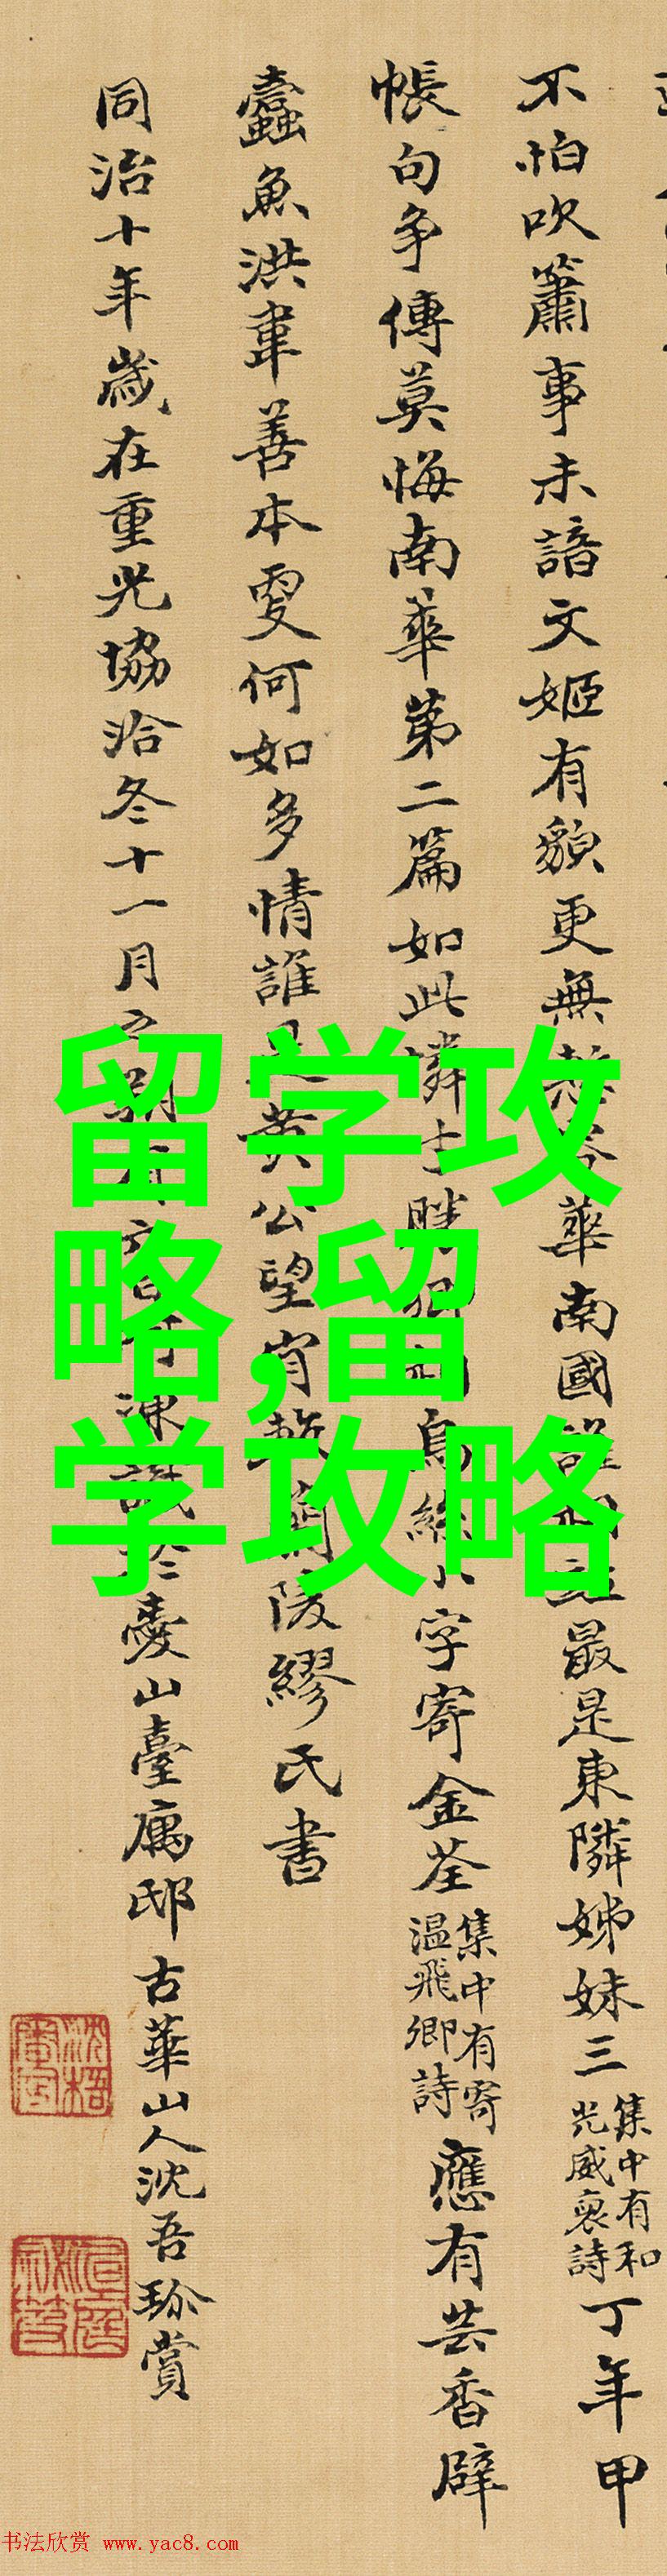 不怕吹簫事未諳文姬有貌更無華南國最是東隣姊妹三集中有和光威裒詩丁年甲
帳句爭傳莫悔南華第二篇如此小字寄金荃集中有寄溫飛卿詩應有芸香辟
蠹魚洪韋善本更何如多情誰是黃公望肯蘭陵繆氏書
同治十年歲在重光協洽冬十一月之朔臺寓邸古華山人沈吾珍賞
留学攻
略,留
学攻略
书法欣赏 www.yac8.com